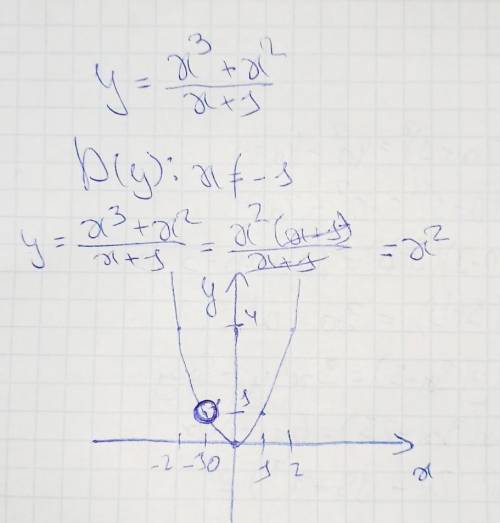 y = (x³ + x²)/(x + 1)
D(y): x ≠ -1
y = (x³ + x²)/(x + 1) = (x²(x + 1))/(x + 1) = x²
y
4
1
-2 -1 0 1 2
x